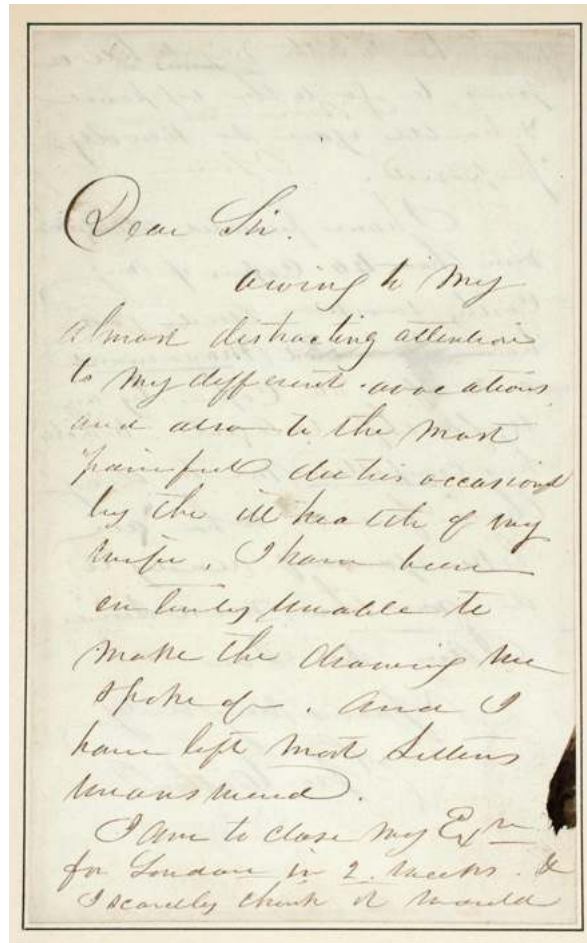 Dear Sir.
owing to My
almost distracting attention
to My different avocations
and also to the Most
painful duties occasiond
by the ill health of my
wife, I have been
entirely unable to
Make the drawing we
spoke of. And I
have left Most Letters
unanswered.
I am to close My Exn
for London in 2. weeks. &
I scarcely think it would